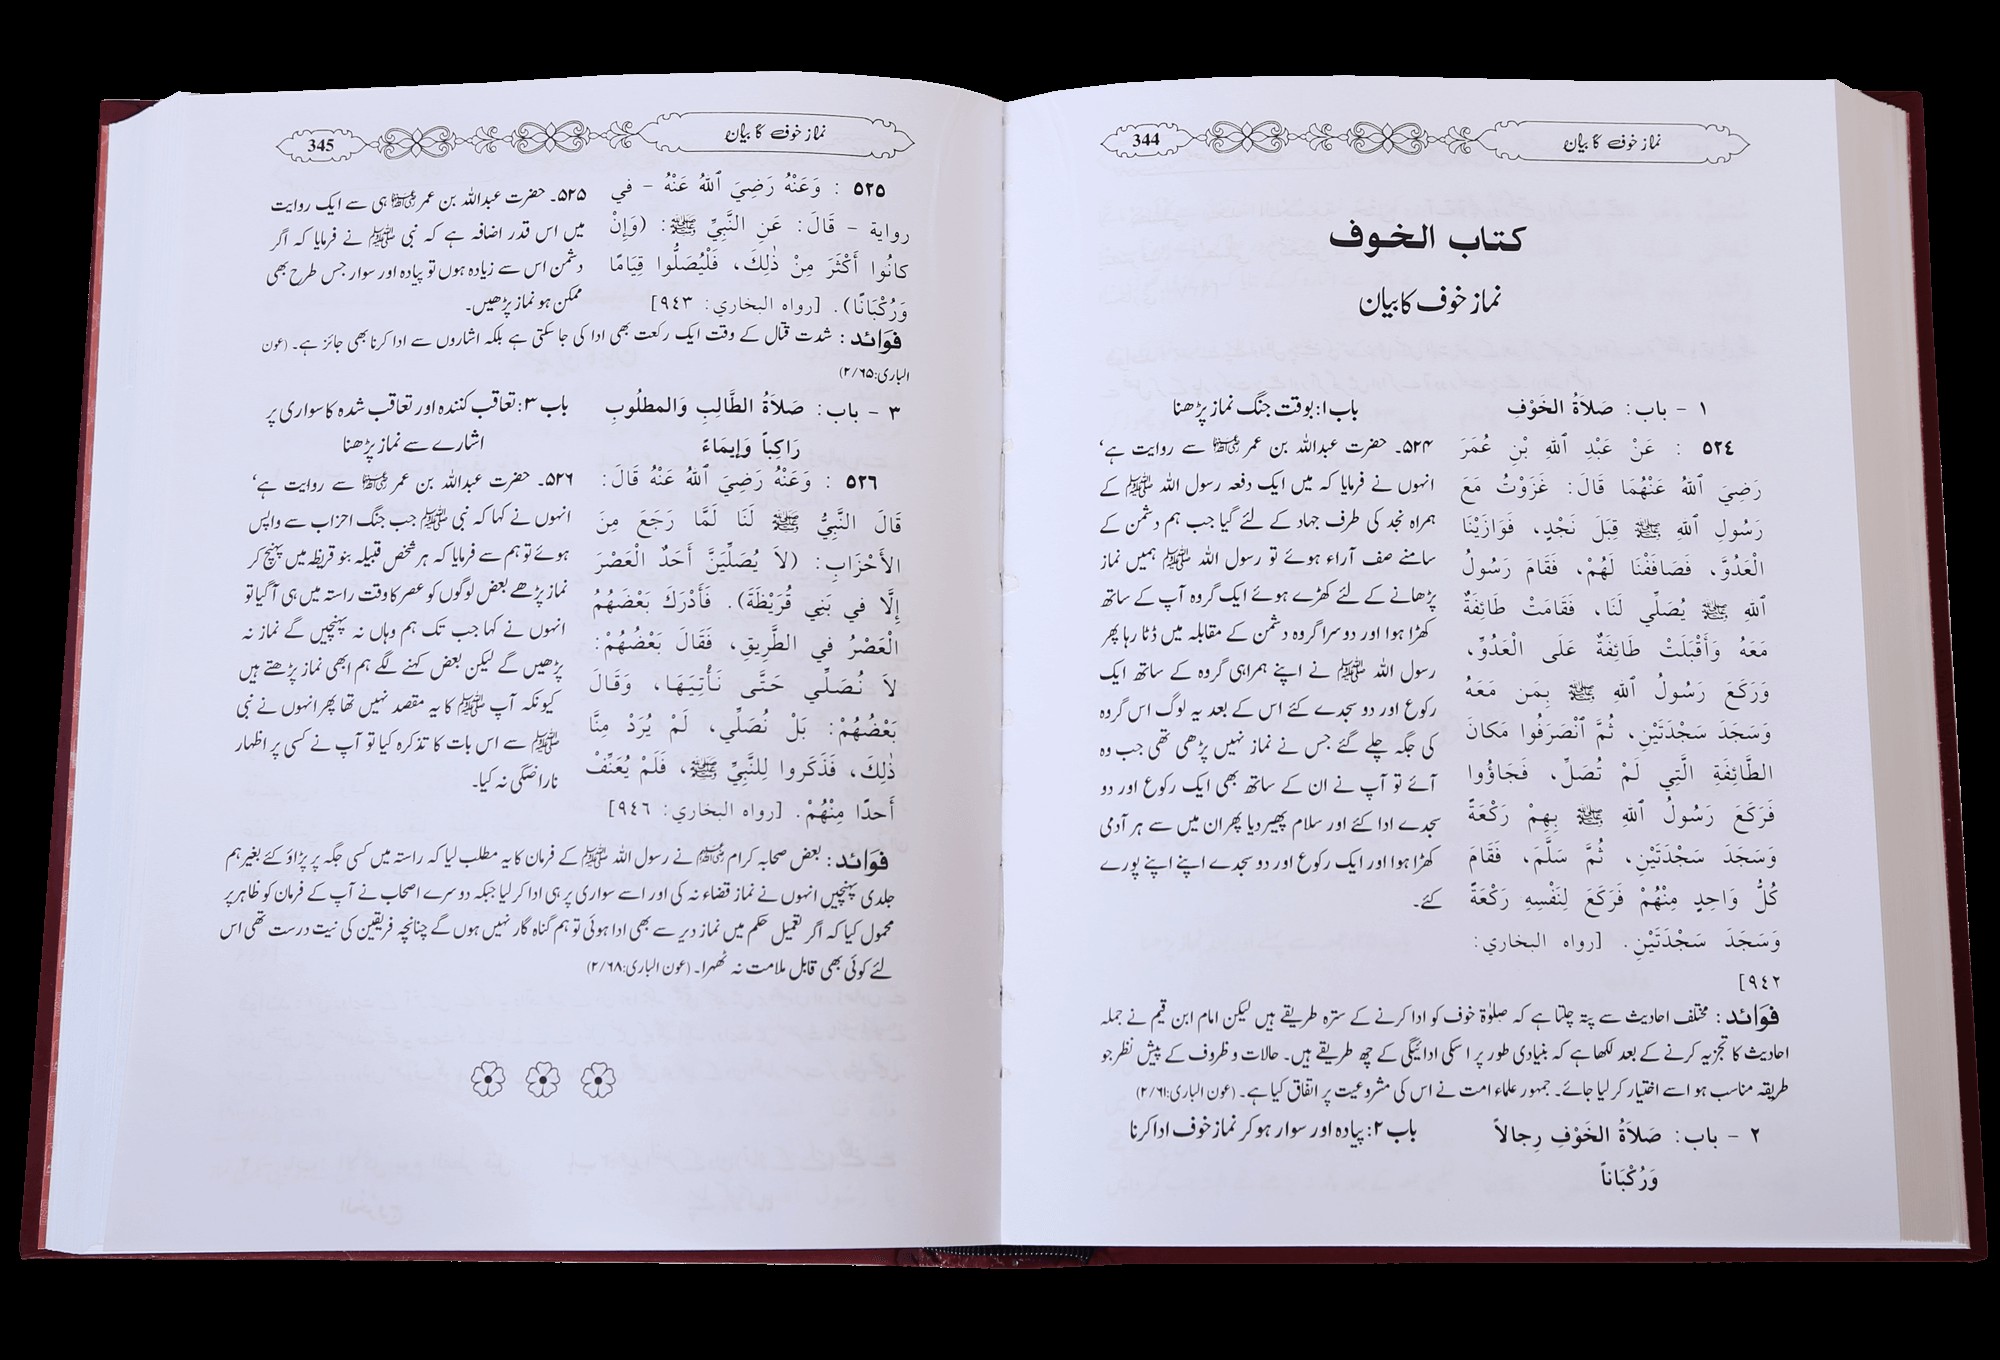 نماز خوف کا بیان
344
كتاب الخوف
نماز خوف کا بیان
١ - باب: صَلاَةُ الخَوْفِ
٥٢٤ : عَنْ عَبْدِ ٱللهِ بْنِ عُمَرَ
رَضِيَ ٱللهُ عَنْهُمَا قَالَ: غَزَوْتُ مَعَ
رَسُولِ ٱللهِ ﷺ قِبَلَ نَجْدٍ، فَوَازَيْنَا
الْعَدُوَّ، فَصَافَفْنَا لَهُمْ، فَقَامَ رَسُولُ
ٱللهِ ﷺ يُصَلِّي لَنَا، فَقَامَتْ طَائِفَةٌ
مَعَهُ وَأَقْبَلَتْ طَائِفَةٌ عَلَى الْعَدُوِّ،
وَرَكَعَ رَسُولُ ٱللهِ ﷺ بِمَن مَعَهُ
وَسَجَدَ سَجْدَتَيْنِ، ثُمَّ ٱنْصَرَفُوا مَكَانَ
الطَّائِفَةِ الَّتِي لَمْ تُصَلِّ، فَجَاؤُوا
فَرَكَعَ رَسُولُ ٱللهِ ﷺ بِهِمْ رَكْعَةً
وَسَجَدَ سَجْدَتَيْنِ، ثُمَّ سَلَّمَ، فَقَامَ
كُلُّ وَاحِدٍ مِنْهُمْ فَرَكَعَ لِنَفْسِهِ رَكْعَةً
وَسَجَدَ سَجْدَتَيْنِ. [رواه البخاري:
٩٤٢]
باب ۱: بوقت جنگ نماز پڑھنا
۵۲۴۔ حضرت عبداللہ بن عمر رضی اللہ عنہما سے روایت ہے،
انہوں نے فرمایا کہ میں ایک دفعہ رسول اللہ ﷺ کے
ہمراہ نجد کی طرف جہاد کے لئے گیا جب ہم دشمن کے
سامنے صف آراء ہوئے تو رسول اللہ ﷺ ہمیں نماز
پڑھانے کے لئے کھڑے ہوئے ایک گروہ آپ کے ساتھ
کھڑا ہوا اور دوسرا گروہ دشمن کے مقابلہ میں ڈٹا رہا پھر
رسول اللہ ﷺ نے اپنے ہمراہی گروہ کے ساتھ ایک
رکوع اور دو سجدے کئے اس کے بعد یہ لوگ اس گروہ
کی جگہ چلے گئے جس نے نماز نہیں پڑھی تھی جب وہ
آئے تو آپ نے ان کے ساتھ بھی ایک رکوع اور دو
سجدے ادا کئے اور سلام پھیر دیا پھر ان میں سے ہر آدمی
کھڑا ہوا اور ایک رکوع اور دو سجدے اپنے اپنے پورے
کئے۔
فوَائد : مختلف احادیث سے پتہ چلتا ہے کہ صلوٰۃ خوف کو ادا کرنے کے سترہ طریقے ہیں لیکن امام ابن قیم نے جملہ
احادیث کا تجزیہ کرنے کے بعد لکھا ہے کہ بنیادی طور پر اسکی ادائیگی کے چھ طریقے ہیں۔ حالات و ظروف کے پیش نظر جو
طریقہ مناسب ہو اسے اختیار کر لیا جائے۔ جمہور علماء امت نے اس کی مشروعیت پر اتفاق کیا ہے۔ (عون الباری:۲/۶۱)
٢ - باب: صَلاَةُ الخَوْفِ رِجالاً
وَرُكْبَاناً
باب ۲: پیادہ اور سوار ہو کر نماز خوف ادا کرنا
نماز خوف کا بیان
345
٥٢٥ : وَعَنْهُ رَضِيَ ٱللهُ عَنْهُ - في
رواية - قَالَ: عَنِ النَّبِيِّ ﷺ: (وَإِنْ
كانُوا أَكْثَرَ مِنْ ذٰلِكَ، فَلْيُصَلُّوا قِيَامًا
وَرُكْبَانًا). [رواه البخاري: ٩٤٣]
۵۲۵۔ حضرت عبداللہ بن عمر رضی اللہ عنہما ہی سے ایک روایت
میں اس قدر اضافہ ہے کہ نبی ﷺ نے فرمایا کہ اگر
دشمن اس سے زیادہ ہوں تو پیادہ اور سوار جس طرح بھی
ممکن ہو نماز پڑھیں۔
فوَائد : شدت قتال کے وقت ایک رکعت بھی ادا کی جا سکتی ہے بلکہ اشاروں سے ادا کرنا بھی جائز ہے۔ (عون
الباری:۲/۶۵)
٣ - باب: صَلاَةُ الطَّالِبِ وَالمطلُوبِ
رَاكِباً وَإِيمَاءً
٥٢٦ : وَعَنْهُ رَضِيَ ٱللهُ عَنْهُ قَالَ:
قَالَ النَّبِيُّ ﷺ لَنَا لَمَّا رَجَعَ مِنَ
الأَحْزَابِ: (لاَ يُصَلِّيَنَّ أَحَدٌ الْعَصْرَ
إِلَّا في بَنِي قُرَيْظَةَ). فَأَدْرَكَ بَعْضَهُمُ
الْعَصْرُ في الطَّرِيقِ، فَقَالَ بَعْضُهُمْ:
لاَ نُصَلِّي حَتَّى نَأْتِيَهَا، وَقَالَ
بَعْضُهُمْ: بَلْ نُصَلِّي، لَمْ يُرَدْ مِنَّا
ذٰلِكَ، فَذَكَروا لِلنَّبِيِّ ﷺ، فَلَمْ يُعَنِّفْ
أَحدًا مِنْهُمْ. [رواه البخاري: ٩٤٦]
باب ۳: تعاقب کنندہ اور تعاقب شدہ کا سواری پر
اشارے سے نماز پڑھنا
۵۲۶۔ حضرت عبداللہ بن عمر رضی اللہ عنہما سے روایت ہے،
انہوں نے کہا کہ نبی ﷺ جب جنگ احزاب سے واپس
ہوئے تو ہم سے فرمایا کہ ہر شخص قبیلہ بنو قریظہ میں پہنچ کر
نماز پڑھے بعض لوگوں کو عصر کا وقت راستہ میں ہی آگیا تو
انہوں نے کہا جب تک ہم وہاں نہ پہنچیں گے نماز نہ
پڑھیں گے لیکن بعض کہنے لگے ہم ابھی نماز پڑھتے ہیں
کیونکہ آپ ﷺ کا یہ مقصد نہیں تھا پھر انہوں نے نبی
ﷺ سے اس بات کا تذکرہ کیا تو آپ نے کسی پر اظہار
ناراضگی نہ کیا۔
فوَائد : بعض صحابہ کرام رضی اللہ عنہم نے رسول اللہ ﷺ کے فرمان کا یہ مطلب لیا کہ راستہ میں کسی جگہ پر پڑاؤ کئے بغیر ہم
جلدی پہنچیں انہوں نے نماز قضاء نہ کی اور اسے سواری پر ہی ادا کر لیا جبکہ دوسرے اصحاب نے آپ کے فرمان کو ظاہر پر
محمول کیا کہ اگر تعمیل حکم میں نماز دیر سے بھی ادا ہوئی تو ہم گناہ گار نہیں ہوں گے چنانچہ فریقین کی نیت درست تھی اس
لئے کوئی بھی قابل ملامت نہ ٹھہرا۔ (عون الباری:۲/۶۸)